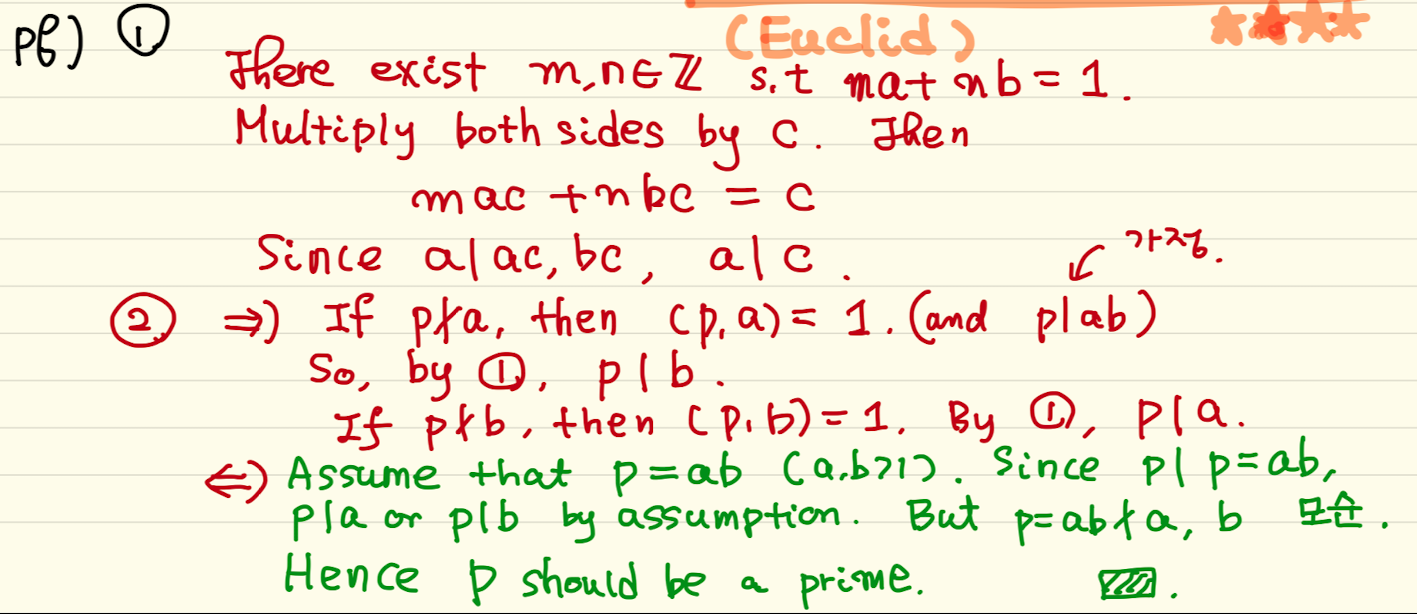 (Euclid) ★★★★
pf) ①
There exist m,n∈ℤ s.t ma+nb=1.
Multiply both sides by c. Then
mac +nbc = c
Since a|ac, bc, a|c.
가정.
② ⇒) If p∤a, then (p,a)=1. (and p|ab)
So, by ①, p|b.
If p∤b, then (p,b)=1. By ①, p|a.
⇐) Assume that p=ab (a,b>1). Since p| p=ab,
p|a or p|b by assumption. But p=ab∤a, b 모순.
Hence p should be a prime. ▨.